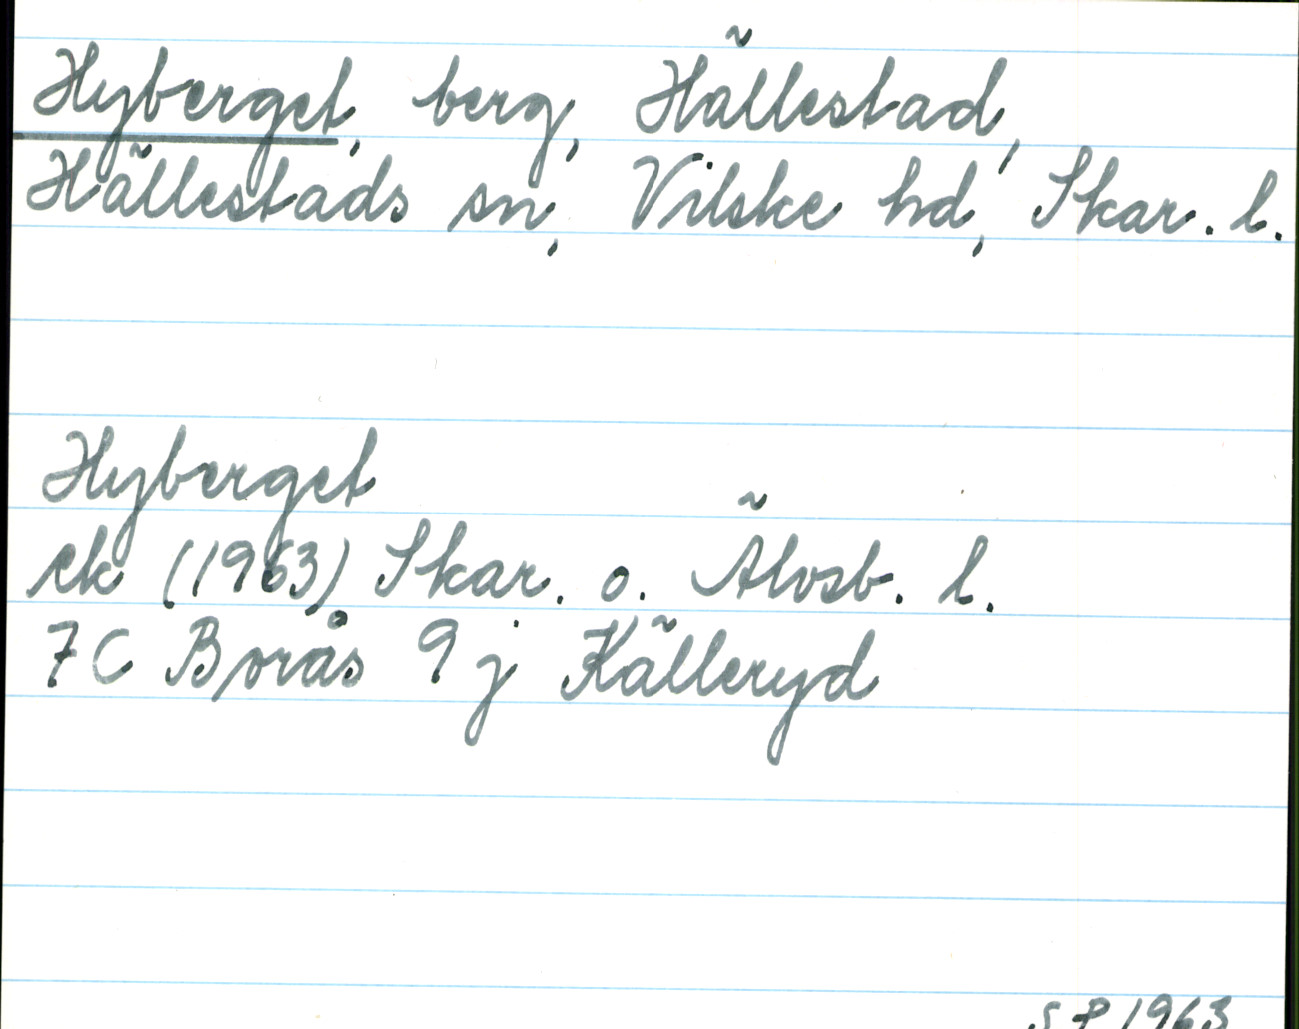 Hyberget, berg, Hällestad,
Hällestads sn, Vilske hd, Skar. l.
Hyberget
ek (1963) Skar. o. Älvsb. l.
7C Borås 9j Källeryd
SP 1963